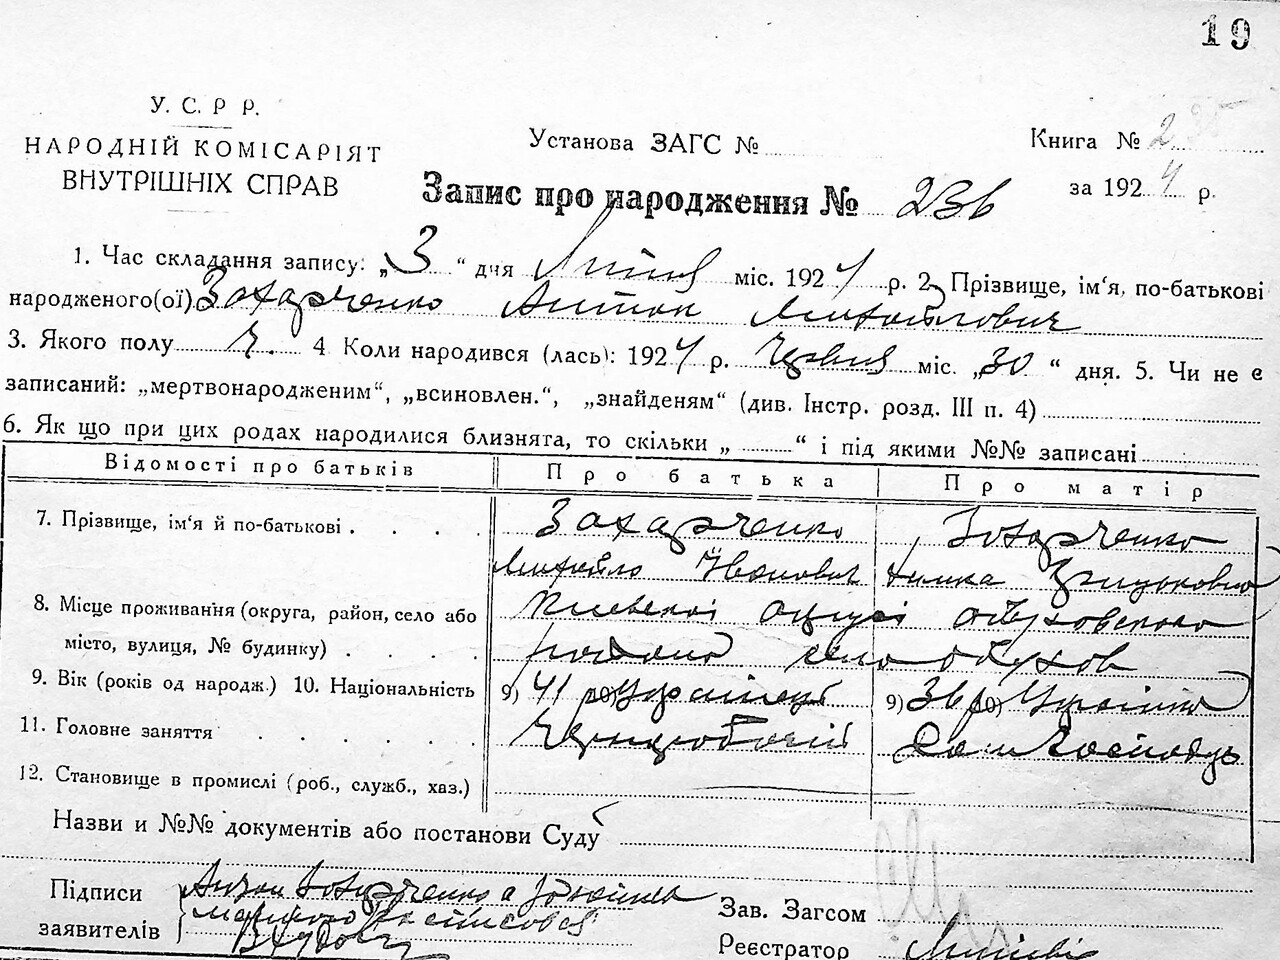 19
У. С. Р Р.
НАРОДНІЙ КОМІСАРІЯТ
ВНУТРІШНІХ СПРАВ
Установа ЗАГС №
Книга № 2
за 1924 р.
Запис про народження № 236
1. Час складання запису: „3“ дня Липня міс. 1924 р. 2. Прізвище, ім'я, по-батькові
народженого(ої) Захарченко Антон Михайлович
3. Якого полу Ч. 4 Коли народився (лась): 1924 р. Червня міс. „30“ дня. 5. Чи не є
записаний: „мертвонародженим“, „всиновлен.“, „знайденям“ (див. Інстр. розд. III п. 4)
6. Як що при цих родах народилися близнята, то скільки „ “ і під якими №№ записані
Відомості про батьків Про батька Про матір
7. Прізвище, ім'я й по-батькові Захарченко Захарченко
Михайло Іванович Грицьковна
8. Місце проживання (округа, район, село або Киевскої округи Обуховского
місто, вулиця, № будинку) району село Обухов
9. Вік (років од народж.) 10. Національність 9) 41 10) Українец 9) 36 10) Українка
11. Головне заняття Чернороботчий Дом Господ
12. Становище в промислі (роб., служб., хаз.)
Назви и №№ документів або постанови Суду
Підписи
заявителів
Захарченко а
Зав. Загсом
Реєстратор